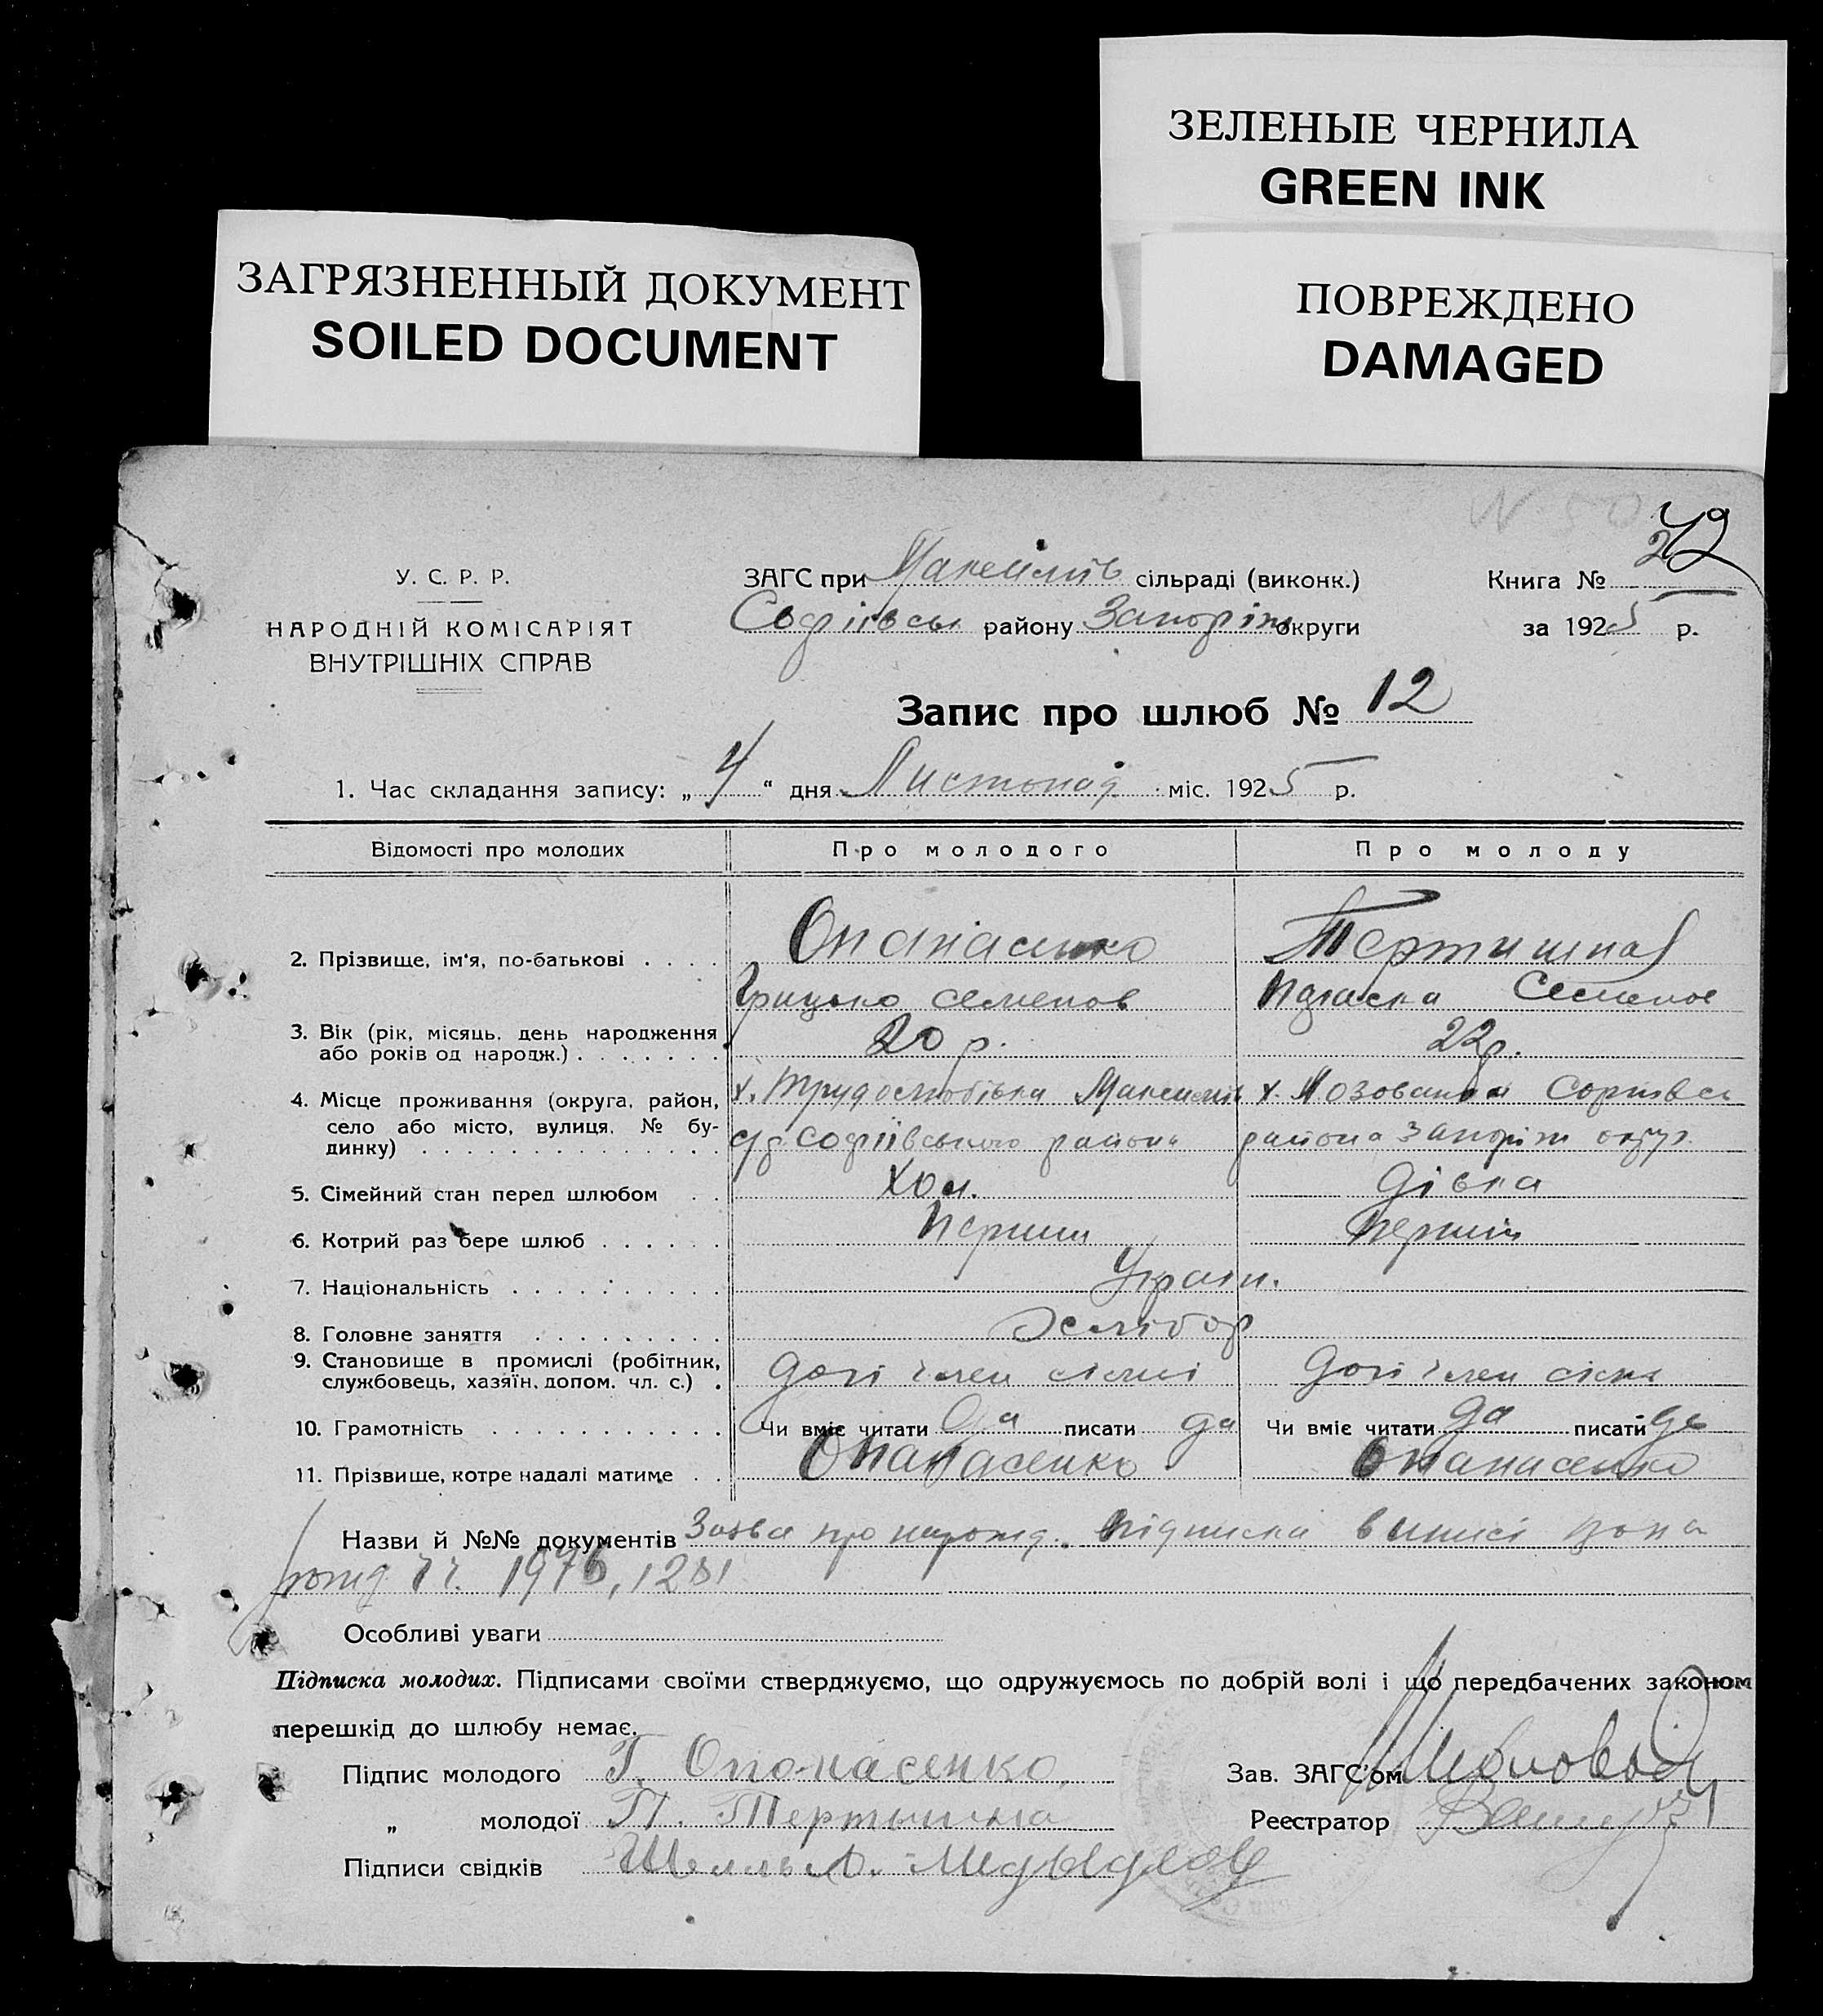 ЗЕЛЕНЫЕ ЧЕРНИЛА
GREEN INK
ЗАГРЯЗНЕННЫЙ ДОКУМЕНТ
SOILED DOCUMENT
ПОВРЕЖДЕНО
DAMAGED
N 50
У. С. Р. Р.
НАРОДНІЙ КОМІСАРІЯТ
ВНУТРІШНІХ СПРАВ
ЗАГС при сільраді (виконк.)
Софіївськ району Запоріж округи
Книга № 2
за 1925 р.
Запис про шлюб № 12
1. Час складання запису: „ 4 “ дня Листопад міс. 1925 р.
Відомості про молодих Про молодого Про молоду
2. Прізвище, ім'я, по-батькові . . . . Опанасенко
Грицько Семенов Параска Семенов
3. Вік (рік, місяць, день народження
або років од народж.) . . . . . . . 20 р. 22р.
4. Місце проживання (округа, район,
село або місто, вулиця, № бу-
динку) . . . . . . . . . . . . . . х. Трудолюбівка х.
Софіївського района района Запоріж округ.
5. Сімейний стан перед шлюбом . . Хол. Дівка
6. Котрий раз бере шлюб . . . . . . Перший Перший
7. Національність . . . . . . . . . . Україн.
8. Головне заняття . . . . . . . . . Хлібор
9. Становище в промислі (робітник,
службовець, хазяїн, допом. чл. с.) . член сімї член
10. Грамотність . . . . . . . . . . . Чи вміє читати да писати да Чи вміє читати да писати да
11. Прізвище, котре надалі матиме . . Опанасенко Опанасенко
Назви й №№ документів Заява про Підписка
1976, 1281
Особливі уваги
Підписка молодих. Підписами своїми стверджуємо, що одружуємось по добрій волі і що передбачених законом
перешкід до шлюбу немає.
Підпис молодого Г. Опонасенко
„ молодої П. Тертышна
Підписи свідків
Зав. ЗАГС'ом
Реєстратор